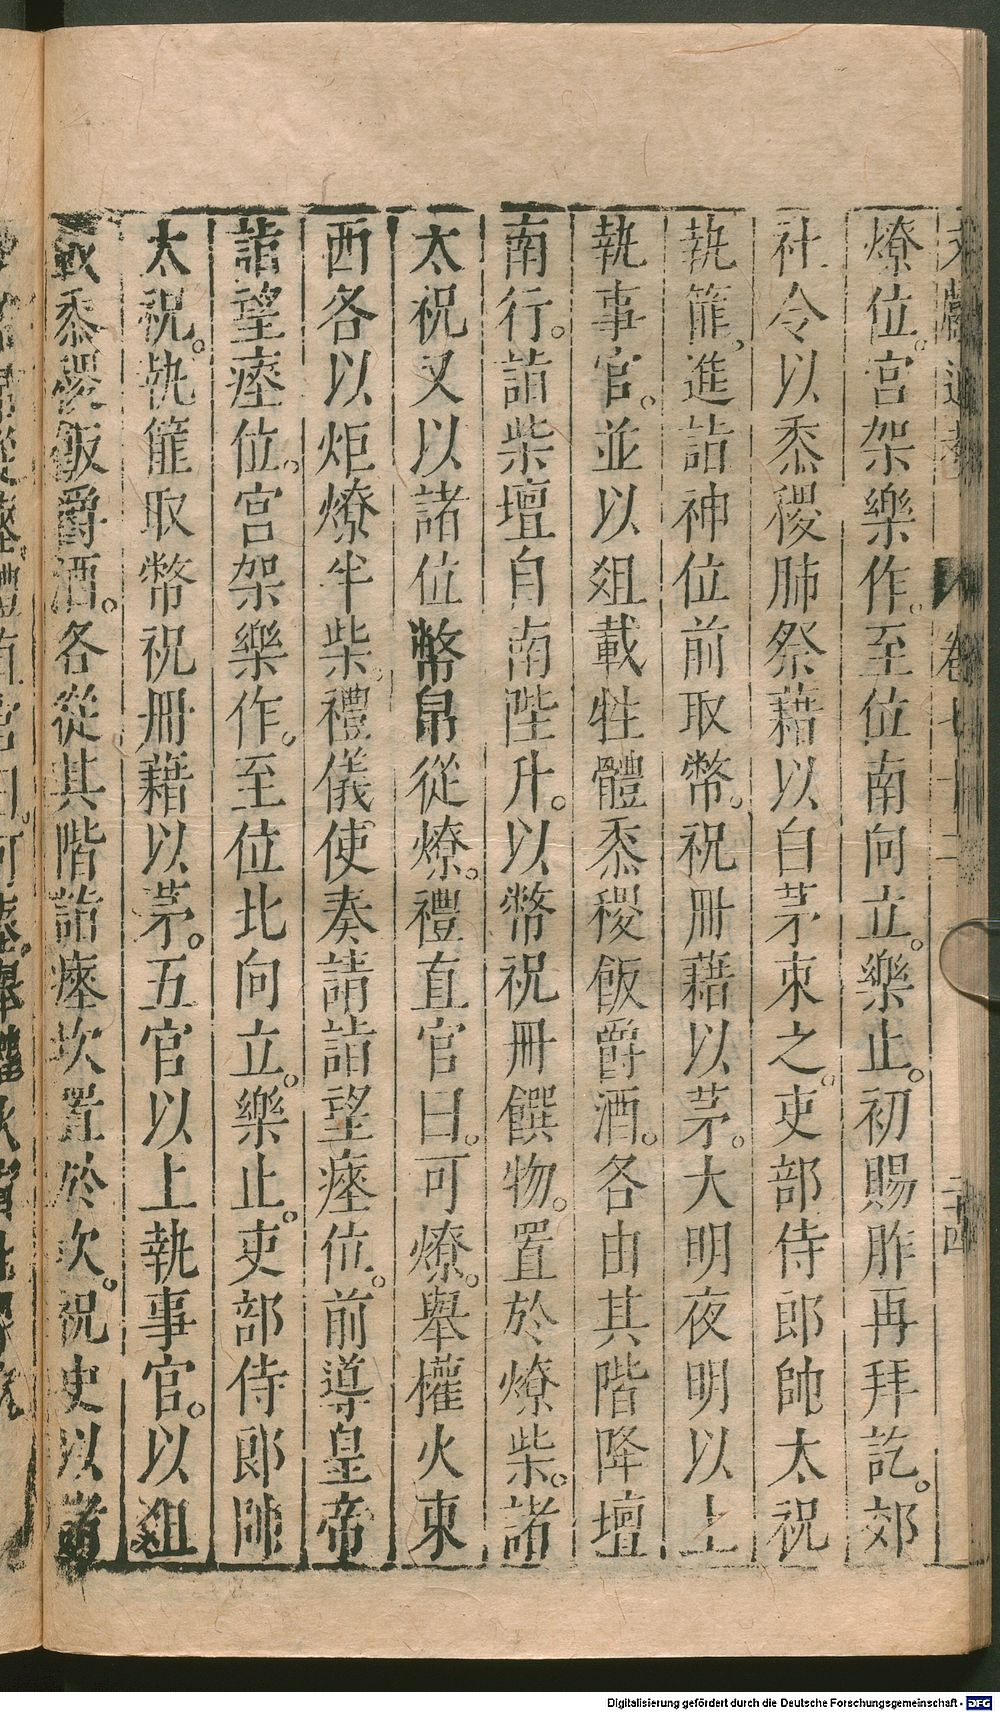 文獻通考 卷七十二 二十四
燎位。宮架樂作。至位南向立。樂止。初賜胙再拜訖。郊
社令以黍稷肺祭藉以白茅束之。吏部侍郎帥太祝
執篚進詣神位前取幣。祝冊藉以茅。大明夜明以上
執事官。並以俎載牲體黍稷飯爵酒。各由其階降壇
南行。詣柴壇自南陛升。以幣祝冊饌物。置於燎柴。諸
太祝又以諸位幣帛從燎。禮直官曰。可燎。舉權火東
西各以炬燎半柴。禮儀使奏請詣望瘞位。前導皇帝
詣望瘞位。宮架樂作。至位北向立。樂止。吏部侍郎帥
太祝。執篚取幣祝冊藉以茅。五官以上執事官。以俎
載黍稷飯爵酒。各從其階詣瘞坎置於坎。祝史以諸
Digitalisierung gefördert durch die Deutsche Forschungsgemeinschaft - DFG